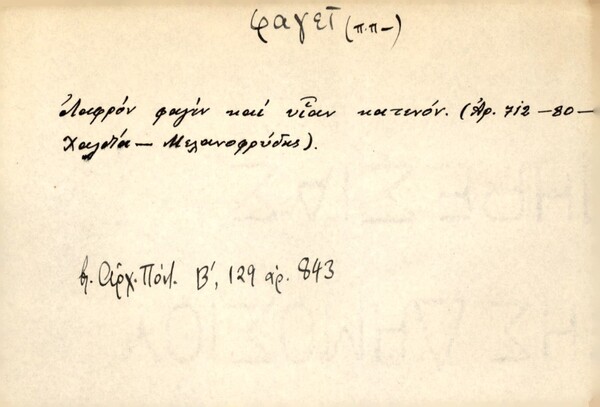 φαγεῖ (π.π-)
ἐλαφρόν φαγίν καί υἷαν κατενόν. (Ἀρ. 712 - 80 -
Χαλδία - Μελανοφρύδης).
βλ. Ἀρχ. Πόντ. Β', 129 ἀρ. 843